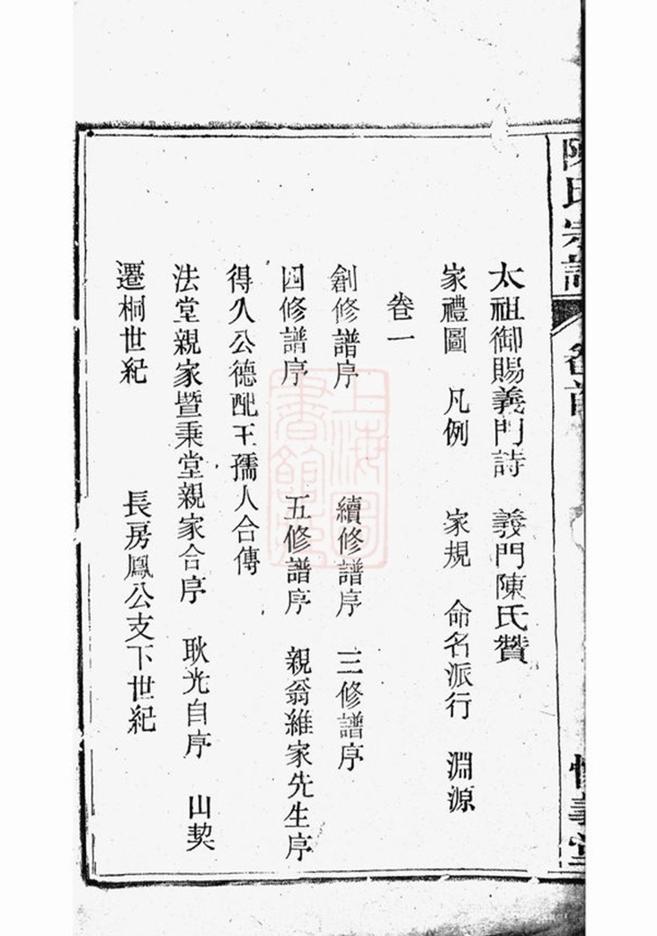 陳氏宗譜 卷首
太祖御賜義門詩 義門陳氏贊
家禮圖 凡例 家規 命名派行 淵源
卷一
創修譜序 續修譜序 三修譜序
四修譜序 五修譜序 親翁維家先生序
得久公德配王孺人合傳
法堂親家暨秉堂親家合序 耿光自序 山契
遷桐世紀 長房鳳公支下世紀
上海圖書館藏